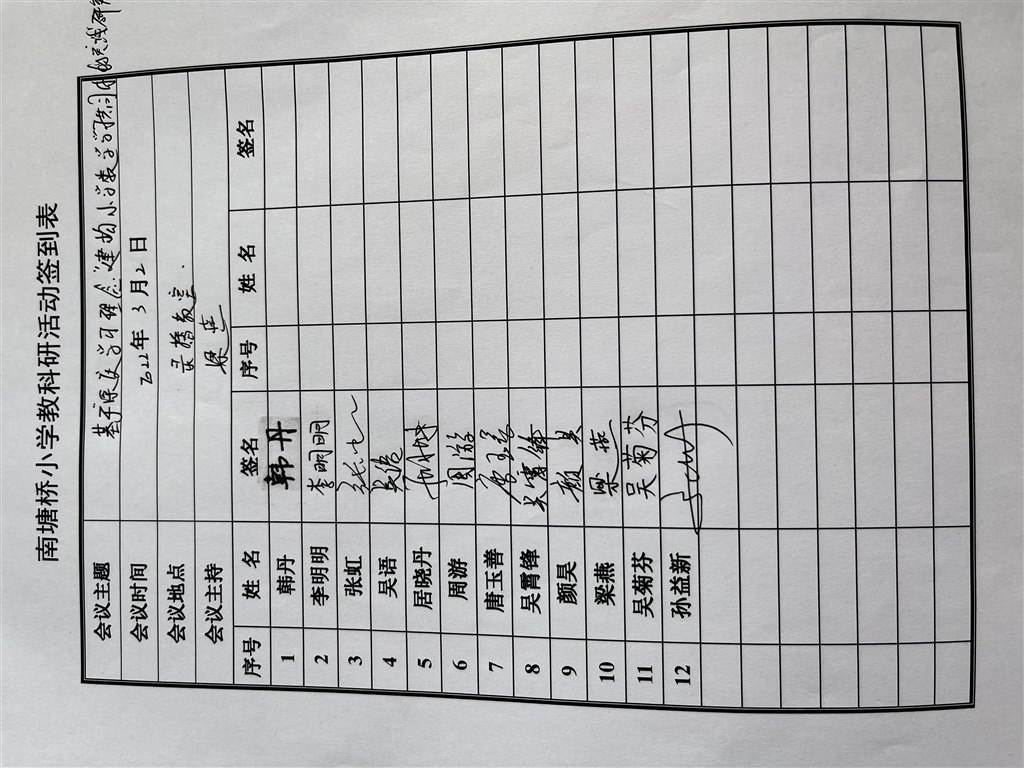 南塘桥小学教科研活动签到表
会议主题 基于"深度学习理念"建构小学数学学习共同体的实践研究
会议时间 2022年 3月2日
会议地点 录播教室.
会议主持 梁燕
序号 姓 名 签名 序号 姓 名 签名
1 韩丹 韩丹
2 李明明 李明明
3 张虹 张虹
4 吴语 吴语
5 居晓丹
6 周游 周游
7 唐玉善 唐玉善
8 吴霄锋 吴霄锋
9 颜昊 颜昊
10 梁燕 梁燕
11 吴菊芬 吴菊芬
12 孙益新